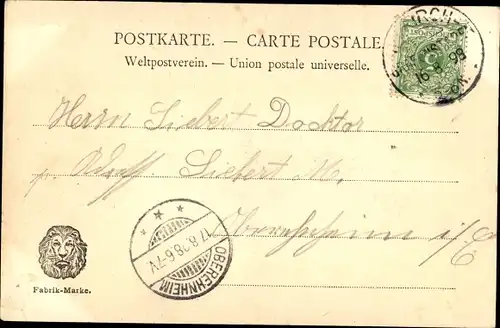 POSTKARTE. — CARTE POSTALE.
Weltpostverein. — Union postale universelle.
16 8 98
Herrn Siebert Docktor
Siebert M,
Oberehnheim i/
OBEREHNHEIM
17.8.98.6-7.V
Fabrik-Marke.